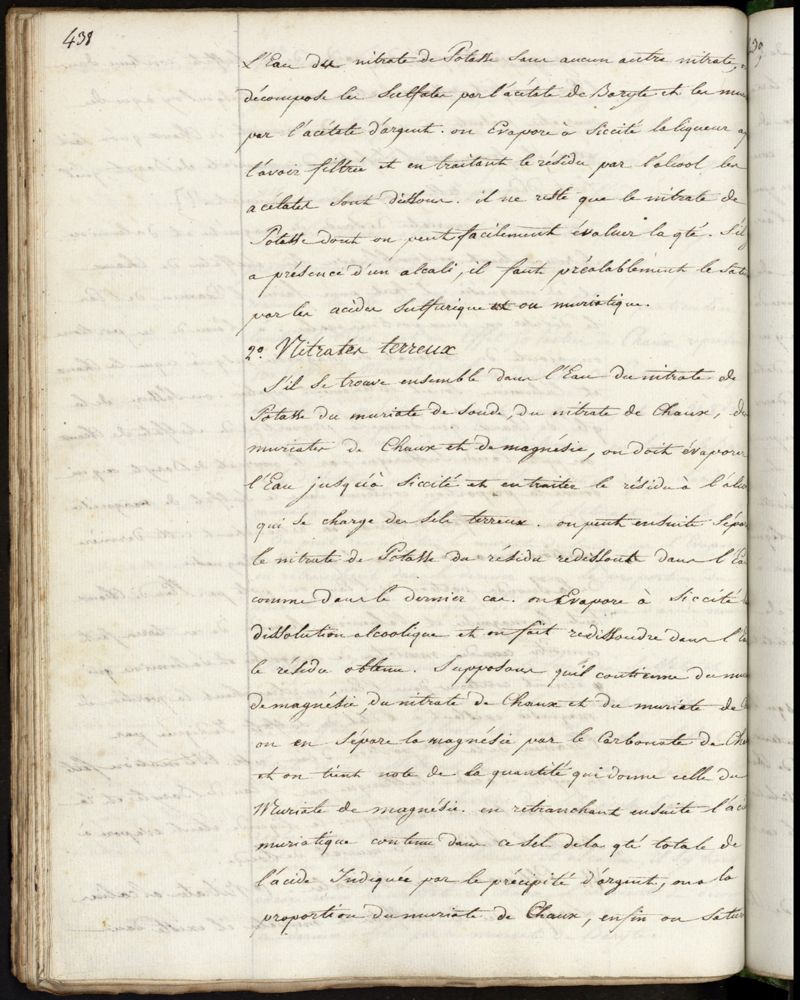 438
L'Eau du nitrate de Potasse sans aucun autre nitrate,
décompose les Sulfates par l'acétate de Baryte et les mur
par l'acétate d'argent. on Evapore à Siccité la liqueur ap
l'avoir filtrée et en traitant le résidu par l'alcool les
acétates sont dissous. il ne reste que le nitrate de
Potasse dont on peut facilement évaluer la qté. S'il y
a présence d'un alcali, il faut préalablement le Satu
par les acides Sulfurique ou muriatique.
2º. Nitrates terreux
S'il se trouve ensemble dans l'Eau du nitrate de
Potasse du muriate de Soude, du nitrate de Chaux, de
muriates de Chaux et de magnésie, on doit évaporer
l'Eau jusqu'à Siccité et en traiter le résidu à l'alco
qui se charge des sels terreux. on peut ensuite Sépa
le nitrate de Potasse du résidu redissout dans l'Ea
comme dans le dernier cas. on Evapore à Siccité
dissolution alcoolique et on fait redissoudre dans l'E
le résidu obtenu. Supposons qu'il contienne du mu
de magnésie, du nitrate de Chaux et du muriate de C
on en Sépare la magnésie par le Carbonate de Cha
et on tient note de la quantité qui donne celle du
Muriate de magnésie. en retranchant ensuite l'aci
muriatique contenu dans ce Sel de la qté totale de
l'acide Indiquée par le précipité d'argent, on a la
proportion du muriate de Chaux, enfin on Satur